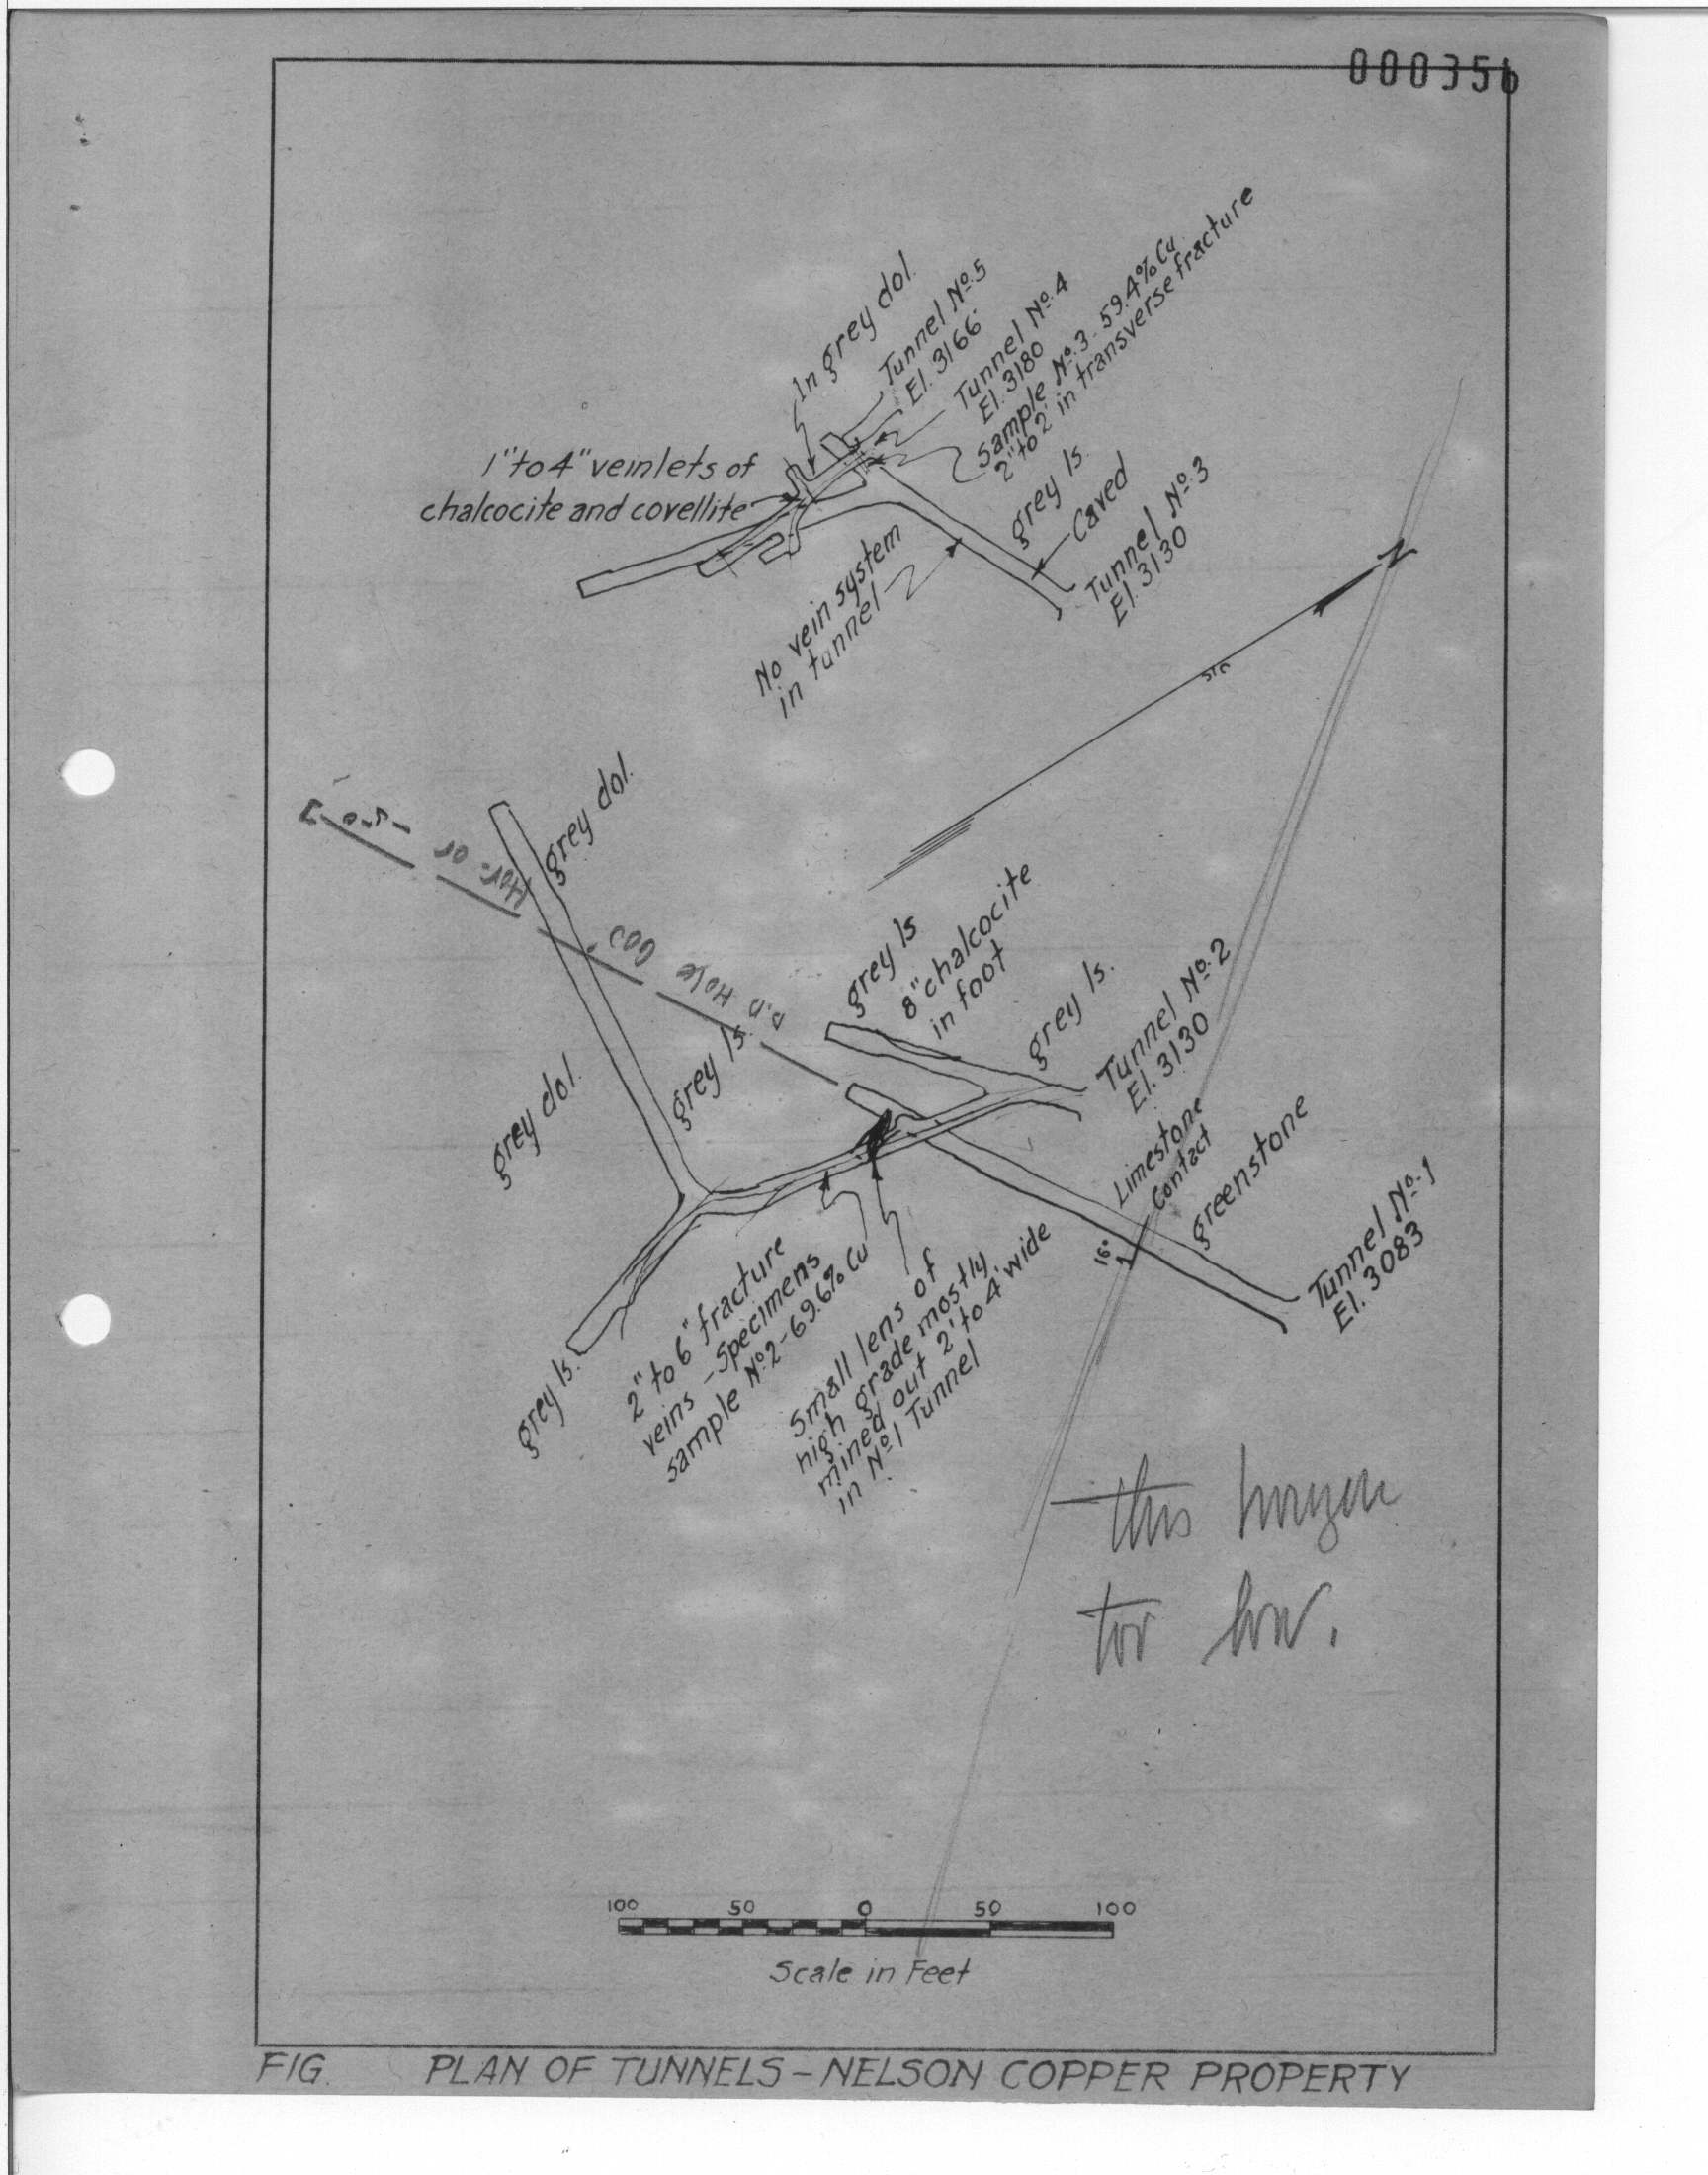 000356
In grey dol.
Tunnel Nº.5
El. 3166
Tunnel Nº.4
El. 3180
Sample Nº.3-59.4%Cu
2" to 2' in transverse fracture
1" to 4" veinlets of
chalcocite and covellite
grey ls.
Caved
Tunnel Nº.3
El. 3130
No vein system
in tunnel
N
grey dol.
Hor. or
D.D. Hole
grey ls
8" chalcocite
in foot
grey ls.
Tunnel Nº.2
El. 3130
grey ls.
grey dol.
Limestone
Contact
greenstone
16°
Tunnel Nº.1
El. 3083
grey ls.
2" to 6" fracture
veins - Specimens
sample Nº2-69.6% Cu
Small lens of
high grade mostly
mined out 2' to 4' wide
in Nº1 Tunnel
this
low.
100 50 0 50 100
Scale in Feet
FIG. PLAN OF TUNNELS - NELSON COPPER PROPERTY